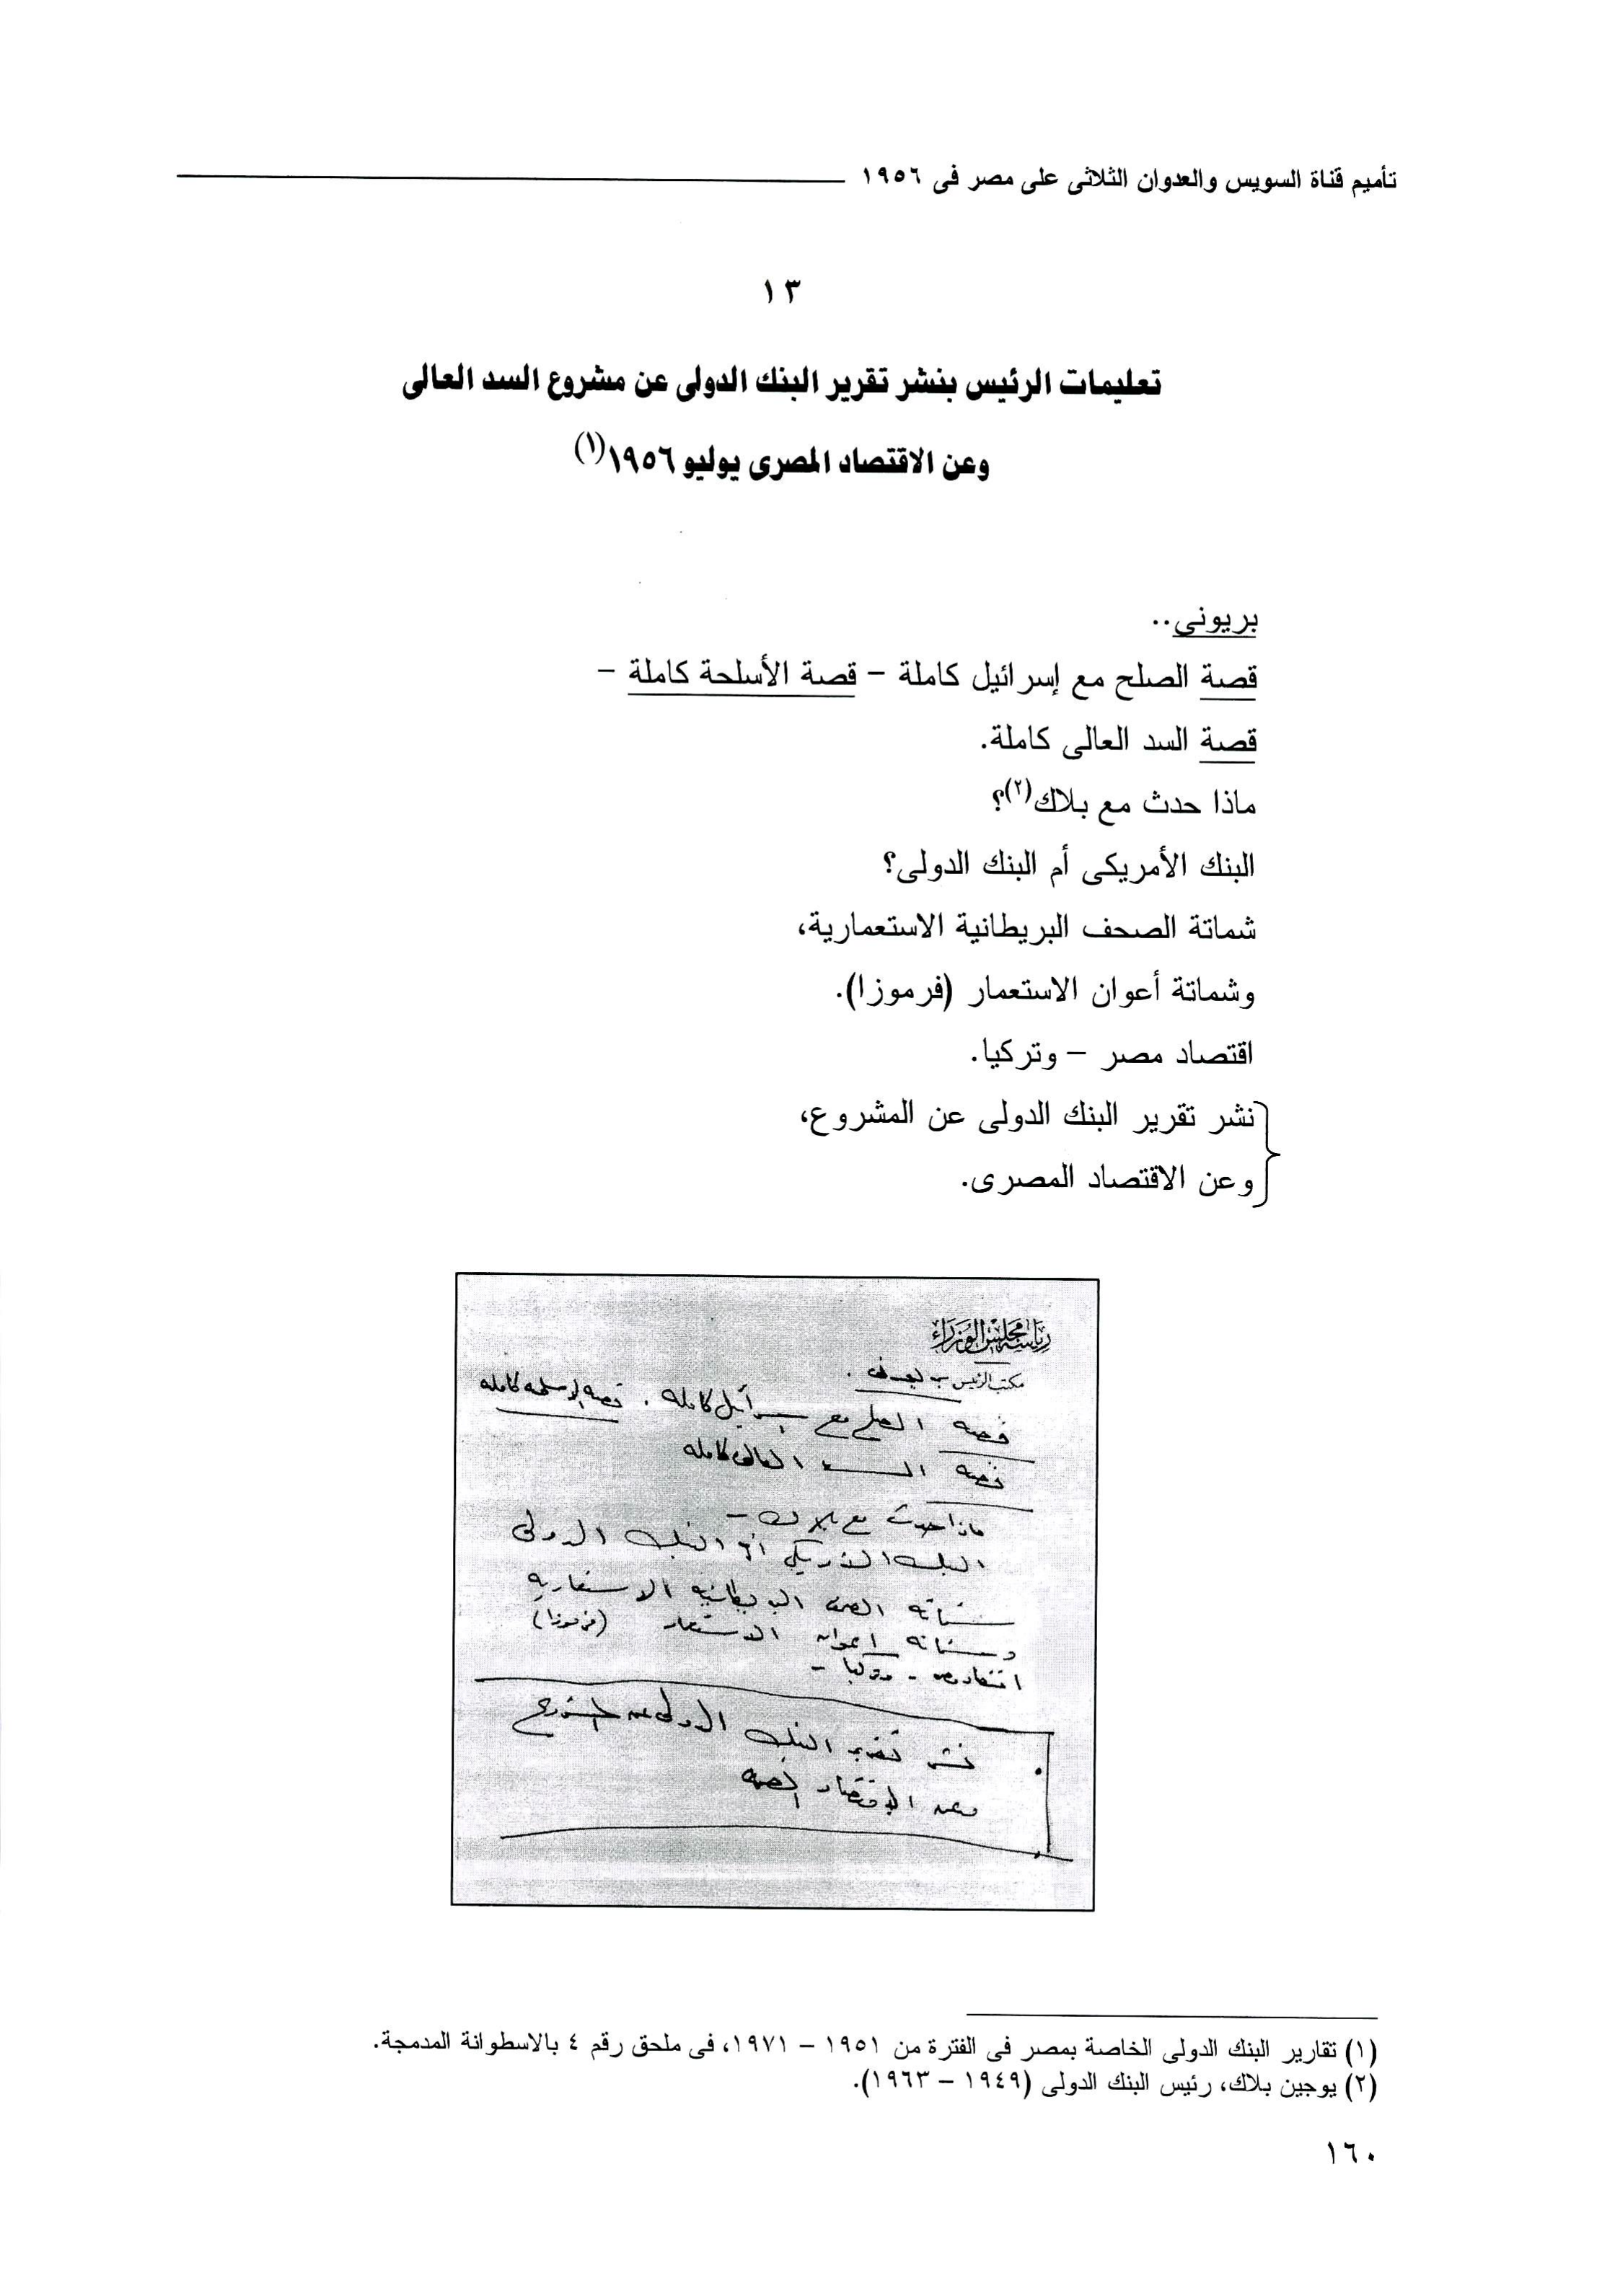 تأميم قناة السويس والعدوان الثلاثى على مصر فى ١٩٥٦
١٣
تعليمات الرئيس بنشر تقرير البنك الدولى عن مشروع السد العالى
وعن الاقتصاد المصرى يوليو ١٩٥٦(١)
بريونى..
قصة الصلح مع إسرائيل كاملة – قصة الأسلحة كاملة –
قصة السد العالى كاملة.
ماذا حدث مع بلاك(٢)؟
البنك الأمريكى أم البنك الدولى؟
شماتة الصحف البريطانية الاستعمارية،
وشماتة أعوان الاستعمار (فرموزا).
اقتصاد مصر – وتركيا.
نشر تقرير البنك الدولى عن المشروع،
وعن الاقتصاد المصرى.
رياسة مجلس الوزراء
مكتب الرئيس
قصه الصلح مع اسرائيل كامله . قصه الاسلحه كامله
قصه السد العالى كامله
ماذا حدث مع بلاك –
البنك الامريكي أم البنك الدولى
شماته الصحف البريطانيه الاستعماريه
وشماته اعوان الاستعمار (فرموزا)
اقتصاد مصر - وتركيا -
نشر تقرير البنك الدولى عن المشروع
وعن الاقتصاد المصرى
(١) تقارير البنك الدولى الخاصة بمصر فى الفترة من ١٩٥١ – ١٩٧١، فى ملحق رقم ٤ بالاسطوانة المدمجة.
(٢) يوجين بلاك، رئيس البنك الدولى (١٩٤٩ – ١٩٦٣).
١٦٠